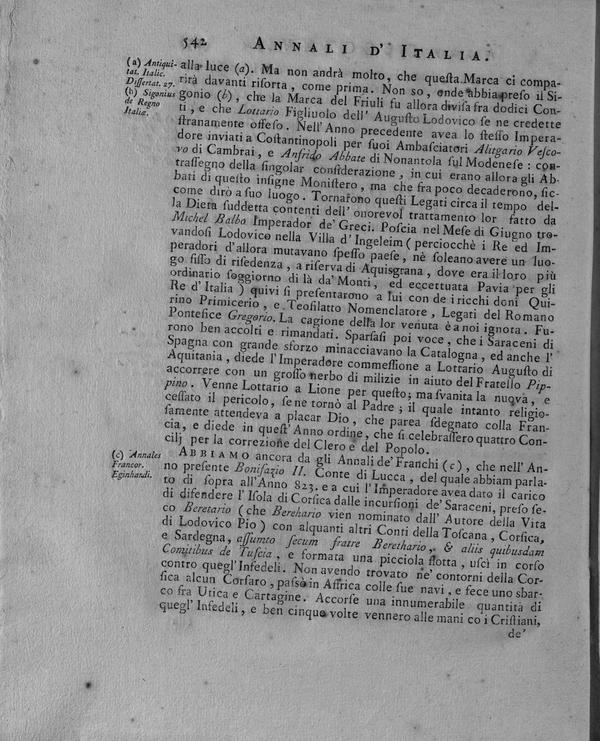 542 ANNALI D' ITALIA.
(a) Antiqui-
tat. Italic.
Dissertat. 27.
(b) Sigonius
de Regno
Italiæ.
alla luce (a). Ma non andrà molto, che questa Marca ci compa-
rirà davanti risorta, come prima. Non so, onde abbia preso il Si-
gonio (b), che la Marca del Friuli fu allora divisa fra dodici Con-
ti, e che Lottario Figliuolo dell' Augusto Lodovico se ne credette
stranamente offeso. Nell'Anno precedente avea lo stesso Impera-
dore inviati a Costantinopoli per suoi Ambasciatori Alitgario Vesco-
vo di Cambrai, e Ansrido Abbate di Nonantola sul Modenese: con-
trassegno della singolar considerazione, in cui erano allora gli Ab-
bati di questo insigne Monistero, ma che fra poco decaderono, sic-
come dirò a suo luogo. Tornarono questi Legati circa il tempo del-
la Dieta suddetta contenti dell' onorevol trattamento lor fatto da
Michel Balbo Imperador de' Greci. Poscia nel Mese di Giugno tro-
vandosi Lodovico nella Villa d' Ingeleim (perciocchè i Re ed Im-
peradori d'allora mutavano spesso paese, nè soleano avere un luo-
go fisso di risedenza, a riserva di Aquisgrana, dove era il loro più
ordinario soggiorno di là da' Monti, ed eccettuata Pavia per gli
Re d'Italia) quivi si presentarono a lui con de i ricchi doni Qui-
rino Primicerio, e Teofilatto Nomenclatore, Legati del Romano
Pontefice Gregorio. La cagione della lor venuta è a noi ignota. Fu-
rono ben accolti e rimandati. Sparsasi poi voce, che i Saraceni di
Spagna con grande sforzo minacciavano la Catalogna, ed anche l'
Aquitania, diede l'Imperadore commessione a Lottario Augusto di
accorrere con un grosso nerbo di milizie in aiuto del Fratello Pip-
pino. Venne Lottario a Lione per questo; ma svanita la nuova, e
cessato il pericolo, se ne tornò al Padre; il quale intanto religio-
samente attendeva a placar Dio, che parea sdegnato colla Fran-
cia, e diede in quest'Anno ordine, che si celebrassero quattro Con-
cilj per la correzione del Clero e del Popolo.
(c) Annales
Francor.
Eginhardi.
ABBIAMO ancora da gli Annali de' Franchi (c), che nell' An-
no presente Bonifazio II. Conte di Lucca, del quale abbiam parla-
to di sopra all'Anno 823. e a cui l'Imperadore avea dato il carico
di difendere l'Isola di Corsica dalle incursioni de' Saraceni, preso se-
co Beretario (che Berehario vien nominato dall' Autore della Vita
di Lodovico Pio) con alquanti altri Conti della Toscana, Corsica,
e Sardegna, assumto secum fratre Berethario, & aliis quibusdam
Comitibus de Tuscia, e formata una picciola flotta, uscì in corso
contro quegl' Infedeli. Non avendo trovato ne' contorni della Cor-
sica alcun Corsaro, passò in Affrica colle sue navi, e fece uno sbar-
co fra Utica e Cartagine. Accorse una innumerabile quantità di
quegl' Infedeli, e ben cinque volte vennero alle mani co i Cristiani,
de'